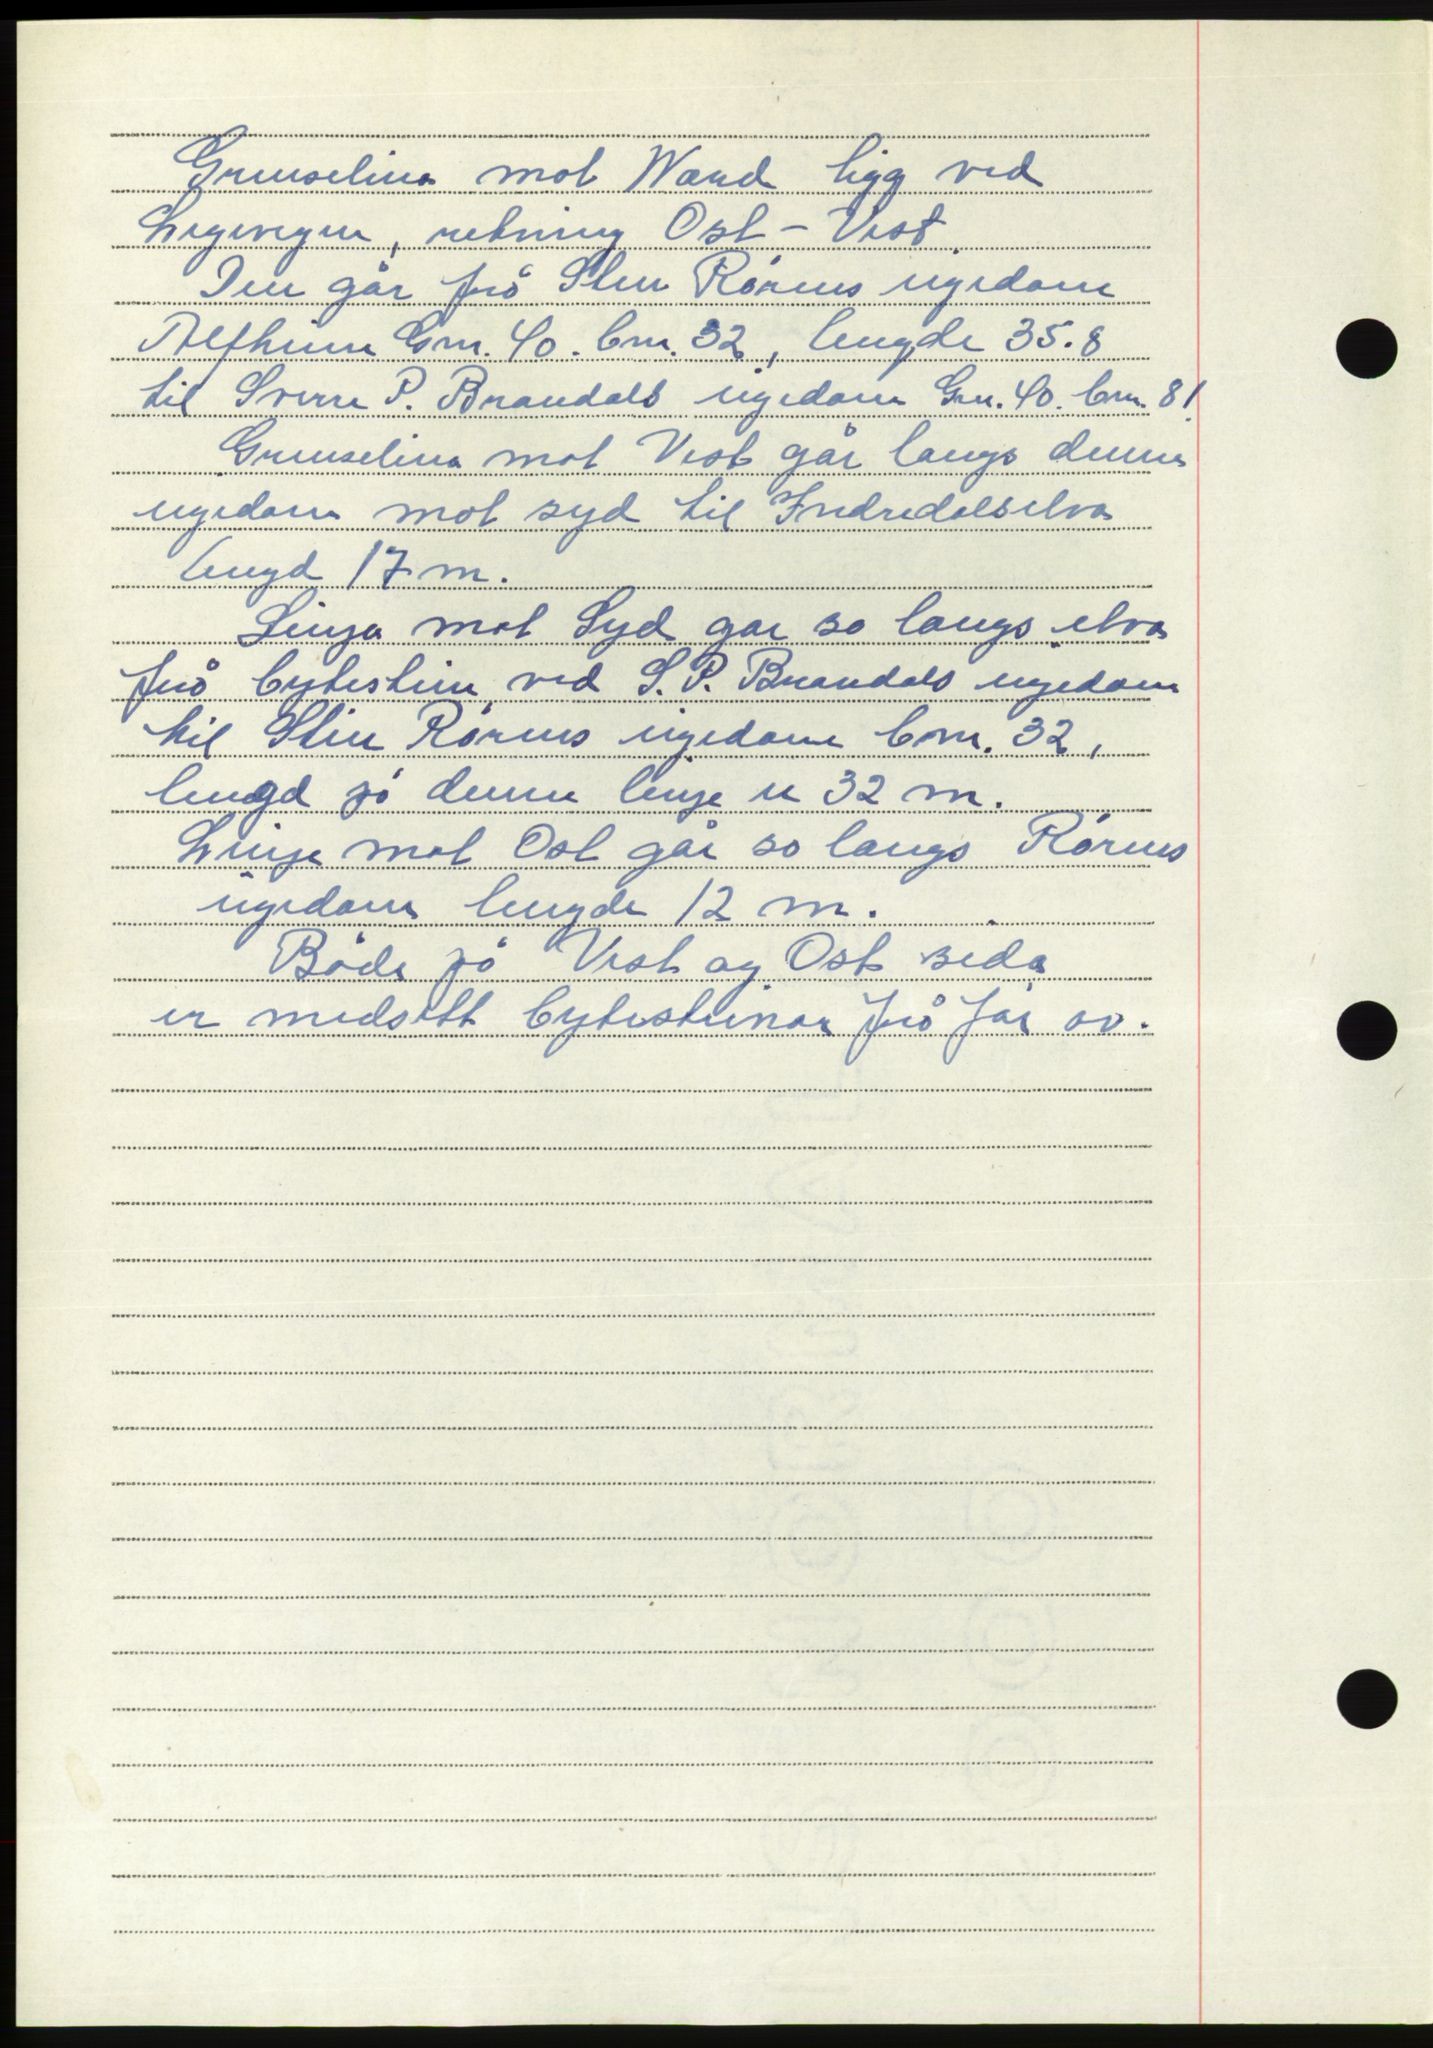 Grenselina mot Nord ligg ved
Legevegen, retning Ost - Vest.
Den går frå Sten Rörnes eigedom
Alfheim Gnr. 40. bnr. 32, lengde 35.8
til Sverre P. Brandals eigedom Gnr. 40. bnr. 81.
Grenselina mot Vest går langs denne
eigedom mot syd til Indredalselva
lengd 17 m.
Linja mot Syd gar so langs elva
frå bytestein ved S. P. Brandals eigedom
til Stein Rörnes eigedom bnr. 32,
lengd på denne linje er 32 m.
Linje mot Ost går so langs Rörnes
eigedom lengde 12 m.
Både på Vest og Ost sida
er nedsett bytesteinar frå før av.